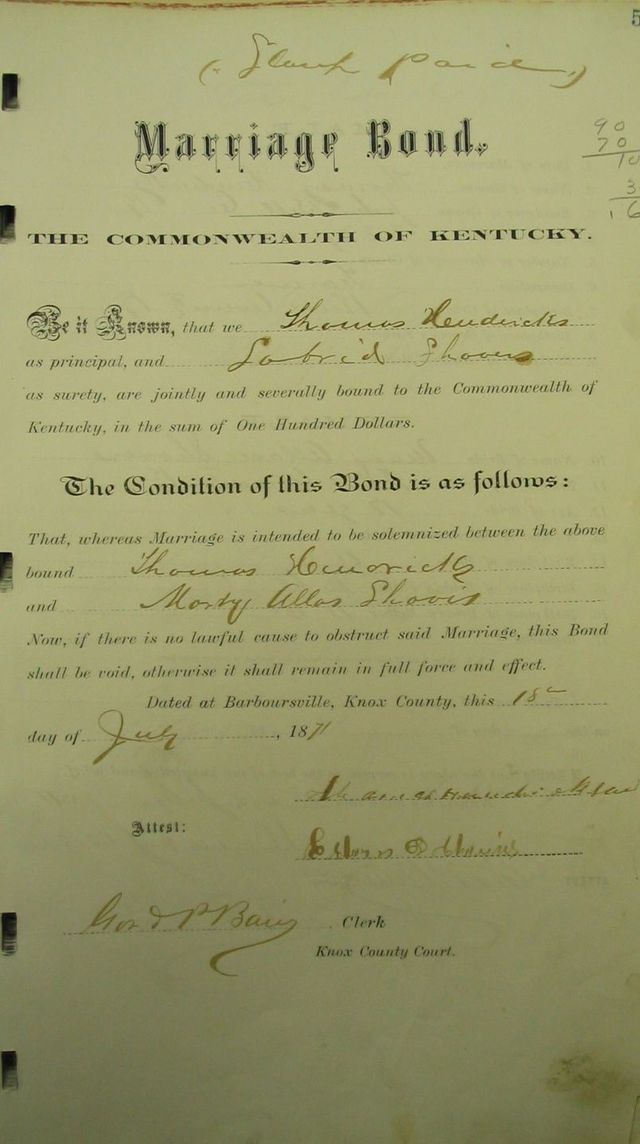 5
( paid )
Marriage Bond.
90
70
THE COMMONWEALTH OF KENTUCKY.
Be it Known, that we Thomas Hendricks
as principal, and
as surety, are jointly and severally bound to the Commonwealth of
Kentucky, in the sum of One Hundred Dollars.
The Condition of this Bond is as follows:
That, whereas Marriage is intended to be solemnized between the above
bound Thomas Hendricks
and
Now, if there is no lawful cause to obstruct said Marriage, this Bond
shall be void, otherwise it shall remain in full force and effect.
Dated at Barboursville, Knox County, this 18
day of July, 1871
Attest:
Clerk
Knox County Court.